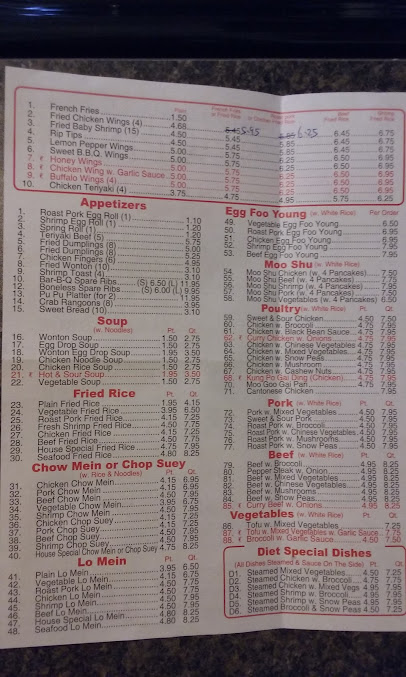 Plain
French Fries or Fried Rice
Beef Fried Rice
Shrimp Fried Rice
1. French Fries 1.50
2. Fried Chicken Wings (4) 4.68 5.45 5.95 5.85 6.25 6.45 6.75
3. Fried Baby Shrimp (15) 4.50 5.45 5.85 6.45 6.75
4. Rip Tips
5. Lemon Pepper Wings
6. Sweet B.B.Q. Wings 5.00
7. Honey Wings 5.00 5.75 6.25 6.50 6.95
8. Chicken Wing w. Garlic Sauce 5.00 5.75 6.25 6.50 6.95
9. Buffalo Wings (4) 5.00 5.75 6.25 6.50 6.95
10. Chicken Teriyaki (4) 3.75 4.75 4.95 5.75 6.25
Appetizers
1. Roast Pork Egg Roll (1) 1.10
2. Shrimp Egg Roll (1) 1.20
3. Spring Roll (1) 1.20
4. Teriyaki Beef (5)
5. Fried Dumplings (8)
6. Fried Dumplings (8)
7. Chicken Fingers (6) 5.25
8. Fried Wonton (10) 4.95
9. Shrimp Toast (4) 3.10
10. Bar-B-Q Spare Ribs (S) 6.50 (L) 11.95
12. Boneless Spare Ribs (S) 6.00 (L) 9.95
13. Pu Pu Platter (for 2) 11.95
14. Crab Rangoons (8) 3.95
15. Sweet Bread (10) 3.10
Soup
(w. Noodles) Pt. Qt.
16. Wonton Soup 1.50 2.75
17. Egg Drop Soup 1.50 2.75
18. Wonton Egg Drop Soup 1.95 3.50
19. Chicken Noodle Soup 1.50 2.75
20. Chicken Rice Soup 1.50 2.75
21. Hot & Sour Soup 1.95 3.50
22. Vegetable Soup 1.50 2.75
Fried Rice Pt. Qt.
23. Plain Fried Rice 1.95 4.15
24. Vegetable Fried Rice 3.95 6.50
25. Roast Pork Fried Rice 4.15 7.25
26. Fresh Shrimp Fried Rice 4.50 7.75
27. Chicken Fried Rice 4.15 7.25
28. Beef Fried Rice 4.50 7.75
29. House Special Fried Rice 4.75 7.95
30. Seafood Fried Rice 4.80 8.25
Chow Mein or Chop Suey
(w. Rice & Noodles) Pt. Qt.
31. Chicken Chow Mein 4.15 6.95
32. Pork Chow Mein 4.15 6.95
33. Beef Chow Mein 4.50 7.95
34. Vegetable Chow Mein 3.95 6.75
35. Shrimp Chow Mein 4.50 7.95
36. Chicken Chop Suey 4.15 7.25
37. Pork Chop Suey 4.15 7.25
38. Beef Chop Suey 4.50 7.95
39. Shrimp Chop Suey 4.50 7.95
40. House Special Chow Mein or Chop Suey 4.75 8.25
Lo Mein Pt. Qt.
41. Plain Lo Mein 3.95 6.50
42. Vegetable Lo Mein 4.15 6.75
43. Roast Pork Lo Mein 4.50 7.75
44. Chicken Lo Mein 4.50 7.75
45. Shrimp Lo Mein 4.50 7.95
46. Beef Lo Mein 4.50 7.95
47. House Special Lo Mein 4.80 8.25
48. Seafood Lo Mein 4.80 8.25
Egg Foo Young (w. White Rice) Per Order
49. Vegetable Egg Foo Young 6.50
50. Roast Pork Egg Foo Young 6.95
51. Chicken Egg Foo Young 6.95
52. Shrimp Egg Foo Young 7.95
53. Beef Egg Foo Young 7.95
Moo Shu (w. White Rice)
54. Moo Shu Chicken (w. 4 Pancakes) 7.50
55. Moo Shu Beef (w. 4 Pancakes) 7.75
56. Moo Shu Shrimp (w. 4 Pancakes) 7.95
57. Moo Shu Pork (w. 4 Pancakes) 7.50
58. Moo Shu Vegetables (w. 4 Pancakes) 6.50
Poultry (w. White Rice) Pt. Qt.
59. Sweet & Sour Chicken 4.50 7.50
60. Chicken w. Broccoli 4.75 7.95
61. Chicken w. Black Bean Sauce 4.75 7.95
62. Curry Chicken w. Onions 4.75 7.95
63. Chicken w. Chinese Vegetables 4.75 7.95
64. Chicken w. Mixed Vegetables 4.75 7.95
65. Chicken w. Snow Peas 4.75 7.95
66. Chicken w. Mushroom 4.75 7.95
67. Chicken w. Cashew Nuts 4.75 7.95
68. Kung Po Gai Ding (Chicken) 4.75 7.95
70. Moo Goo Gai Pan 4.75 7.95
71. Cantonese Chicken 7.95
Pork (w. White Rice) Pt. Qt.
72. Pork w. Mixed Vegetables 4.75 7.95
73. Sweet & Sour Pork 4.50 7.95
74. Roast Pork w. Broccoli 4.75 7.95
75. Roast Pork w. Chinese Vegetables 4.75 7.95
76. Roast Pork w. Mushrooms 4.75 7.95
77. Roast Pork w. Snow Peas 4.75 7.95
Beef (w. White Rice) Pt. Qt.
79. Beef w. Broccoli 4.95 8.25
80. Pepper Steak w. Onion 4.95 8.25
81. Beef w. Mixed Vegetables 4.95 8.25
82. Beef w. Chinese Vegetables 4.95 8.25
83. Beef w. Mushrooms 4.95 8.25
84. Beef w. Snow Peas 4.95 8.25
85. Curry Beef w. Onions 4.95 8.25
Vegetables (w. White Rice) Pt. Qt.
86. Tofu w. Mixed Vegetables 7.25
87. Tofu w. Mixed Vegetables w. Garlic Sauce 7.75
88. Broccoli w. Garlic Sauce 4.50 7.50
Diet Special Dishes
(All Dishes Steamed & Sauce On The Side) Pt. Qt.
D1. Steamed Mixed Vegetables 4.50 7.25
D2. Steamed Chicken w. Broccoli 4.75 7.75
D3. Steamed Chicken w. Mixed Vegs 4.95 7.95
D4. Steamed Shrimp w. Broccoli 4.95 7.95
D5. Steamed Shrimp w. Snow Peas 4.95 7.95
D6. Steamed Broccoli & Snow Peas 4.50 7.25